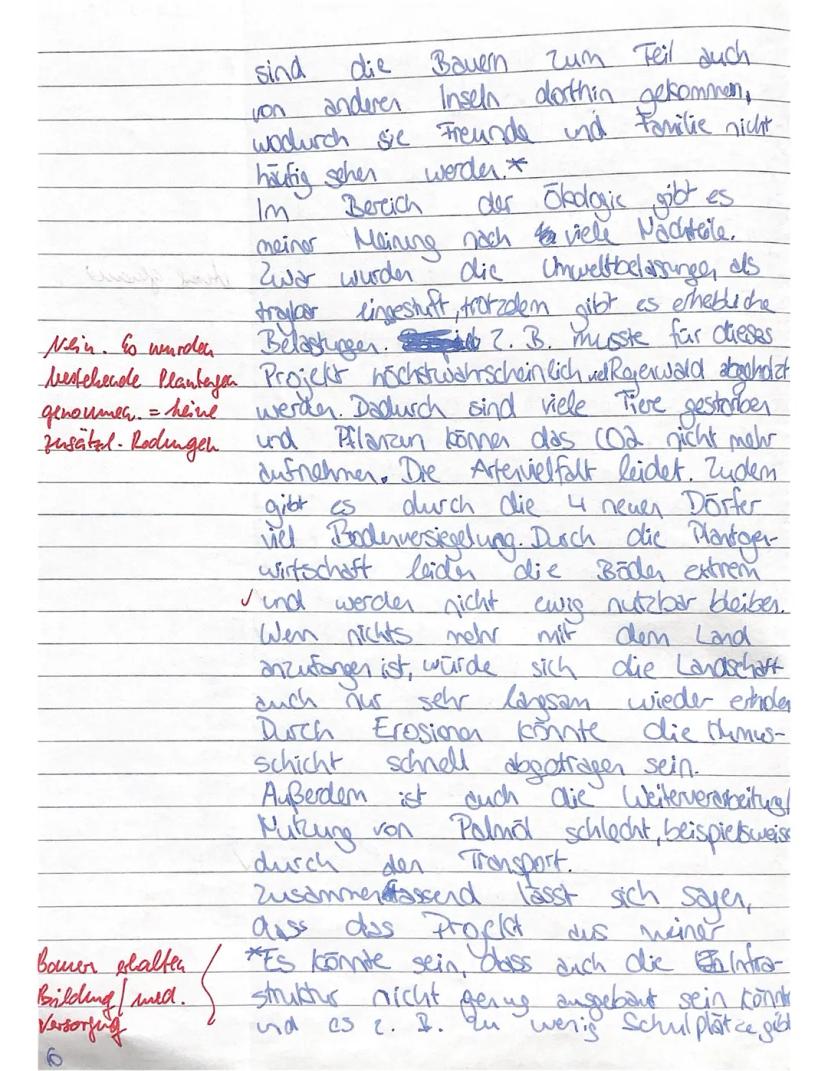 sind die Bauern zum Teil auch
von anderen Inseln dorthin gekommen,
wodurch sie Freunde und Familie nicht
häufig sehen werden.*
Im Bereich der Ökologie gibt es
meiner Meinung nach viele Nachteile.
Zwar wurden die Umweltbelassungen als
tragbar eingestuft, trotzdem gibt es erhebliche
Belastungen. Z. B. musste für dieses
Nein. Es wurden
bestehende Plantagen
genommen. = keine
zusätzl. Rodungen
Projekt höchstwahrscheinlich viel Regenwald abgeholzt
werden. Dadurch sind viele Tiere gestorben
und Pflanzen können das CO2 nicht mehr
aufnehmen. Die Artenvielfalt leidet. Zudem
gibt es durch die 4 neuen Dörfer
viel Bodenversiegelung. Durch die Plantagen-
wirtschaft leiden die Böden extrem
✓ und werden nicht ewig nutzbar bleiben.
Wenn nichts mehr mit dem Land
anzufangen ist, würde sich die Landschaft
auch nur sehr langsam wieder erholen
Durch Erosionen könnte die Humus-
schicht schnell abgetragen sein.
Außerdem ist auch die Weiterverarbeitung/
Nutzung von Palmöl schlecht, beispielsweise
durch den Transport.
Zusammenfassend lässt sich sagen,
dass das Projekt aus meiner
Bauern erhalten
Bildung/med.
Versorgung
*Es könnte sein, dass auch die Infra-
struktur nicht genug ausgebaut sein könnte
und es z. B. zu wenig Schulplätze gibt
6